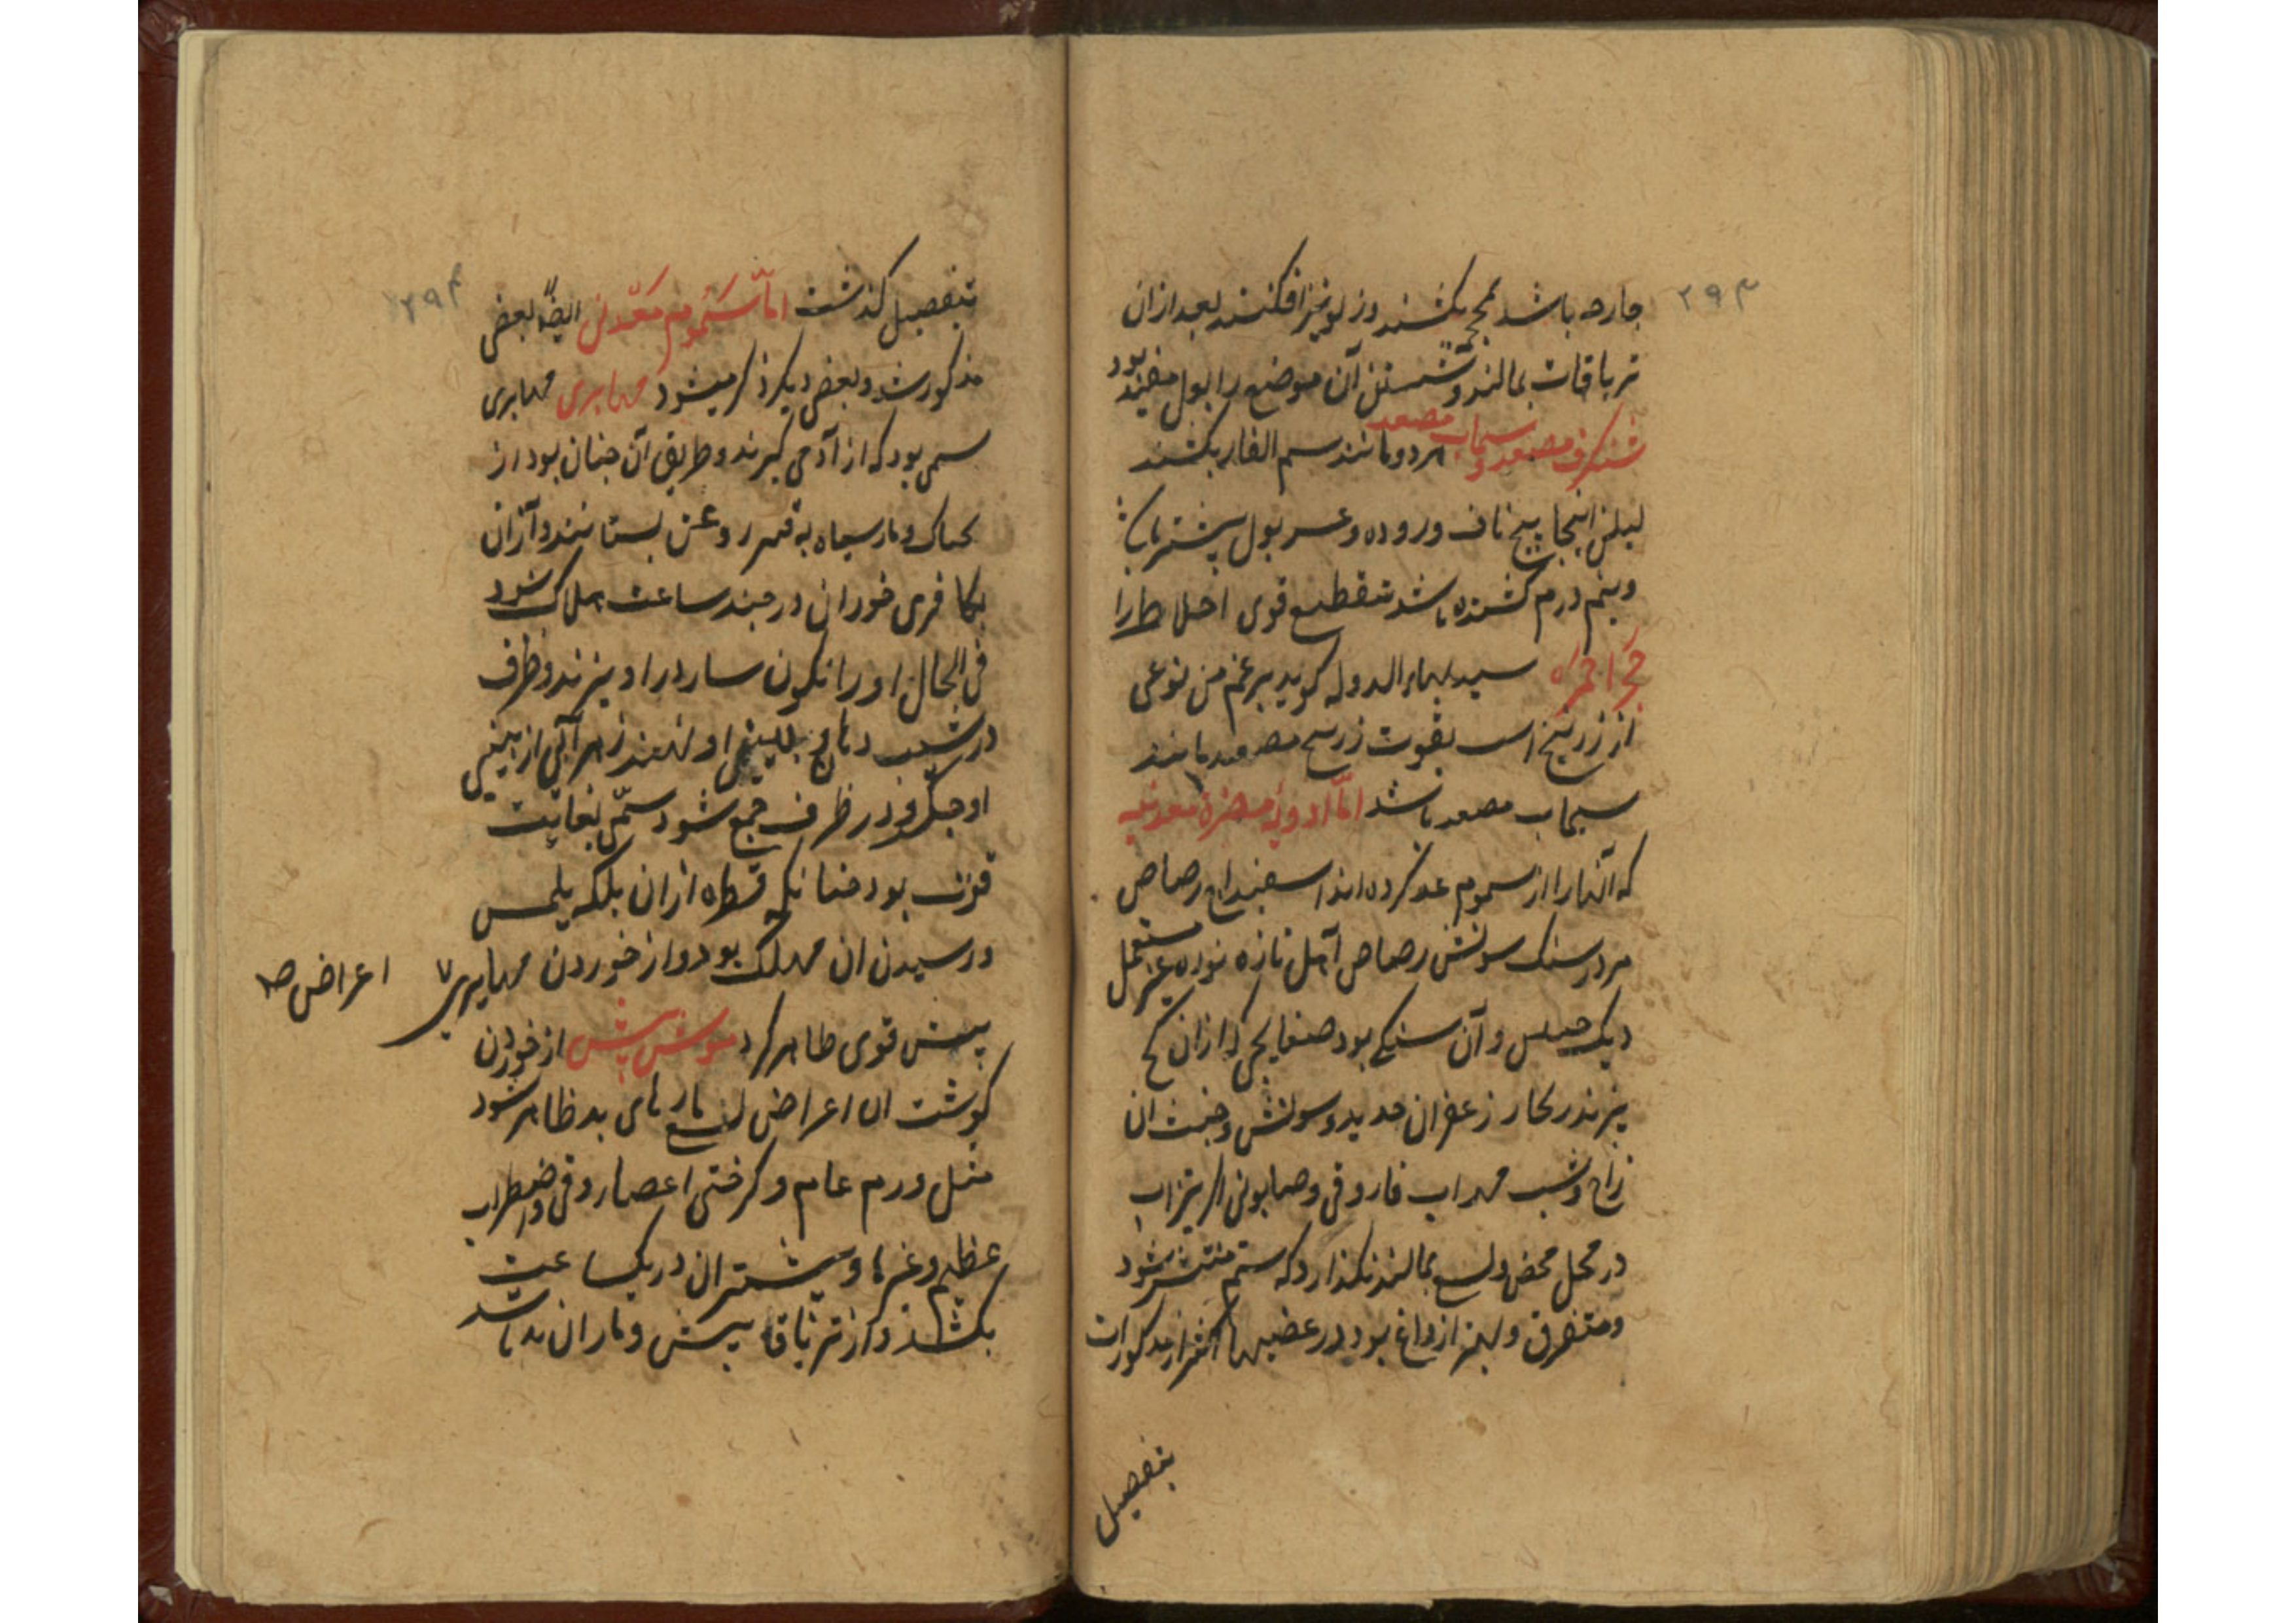 ۲۹۳
جارحه باشد بمحجمه بکشند و زلو نیز افکنند بعد ازان
تریاقات بمالند و شستن آن موضع را بول مفید بود
شنکرف مصعد و سیماب مصعد هر دو مانند سم الفار بکشند
لیکن اینجا پیچ ناف و روده و عسر بول بیشتر باشد
و نیم درم کشنده باشد تقطیع قوی اخلاط را
حجر احمر سید بهاء الدوله کوید بزعم من نوعی
از زرنیخ است بقوت زرنیخ مصعد مانند
سیماب مصعد باشد اما ادویه مضره معدنیه
که آنها را از سموم عد کرده اند اسفیداج رصاص
مردارسنک سونش رصاص آهک تازه نوره غیر مستعمل
دیک و آن سنکی بود ازان کج
پزند زنکار زعفران حدید و سونش و خبث ان
زاج و شب مهر اب فاروقی و صابونی اکر تیزاب
در محل محض ولسع بمالند نکذارد که سم منتشر شود
و متفرق و بهتر از داغ بود در عضیها اکثر از مذکورات
بتفصیل
۲۹۴
بتفصیل کذشت اما سموم معدنی ایضا بعض
مذکور شد و بعض دیکر ذکر میشود مهابری مهابری
سمی بود که از آدمی کیرند و طریق آن چنان بود از
و مار سیاه به روغن بستانند و آزان
بکافری خورانند در چند ساعت هلاک شود
فی الحال او را نکون سار در اویزند و ظرف
در شیب دهان و بینی او نهند زهر آبی از بینی
او چکد و در ظرف جمع شود سمی بغایت
قوی بود چنانکه قطره ازان بلکه بلمس
و رسیدن ان مهلک بود و از خوردن مهابری
اعراض صح
بیش قوی ظاهر کرد موش بیش از خوردن
کوشت ان اعراض لسع مارهای بد ظاهر شود
مثل ورم عام و کرختی اعضا و قی و اضطراب
عظیم و غیرها و بیشتر ان در یکساعت
بکشد و از تریاقا بیش و ماران بد باشد